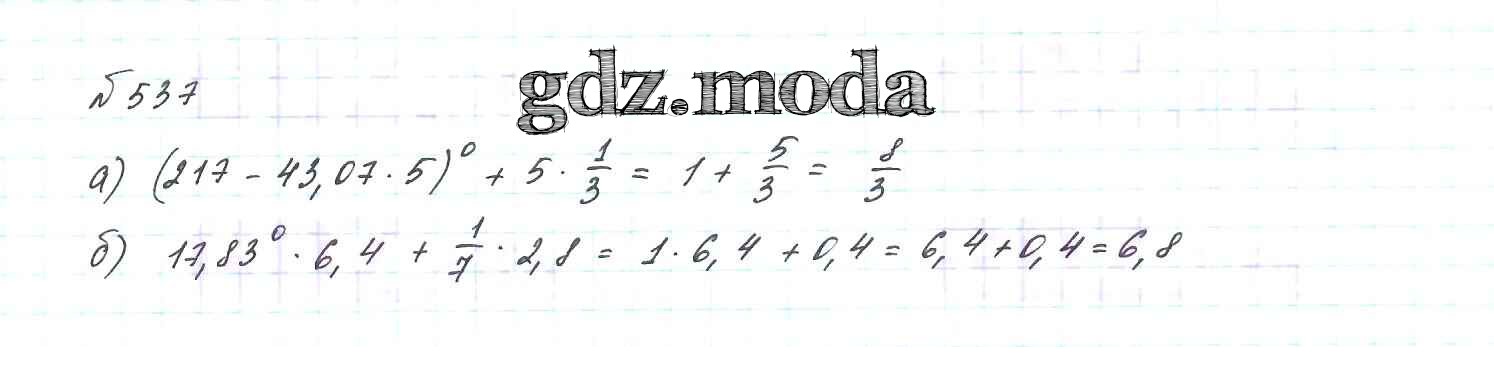 № 537
gdz.moda
а) (217 - 43,07 · 5)⁰ + 5 · 1/3 = 1 + 5/3 = 8/3
б) 17,83⁰ · 6,4 + 1/7 · 2,8 = 1 · 6,4 + 0,4 = 6,4 + 0,4 = 6,8